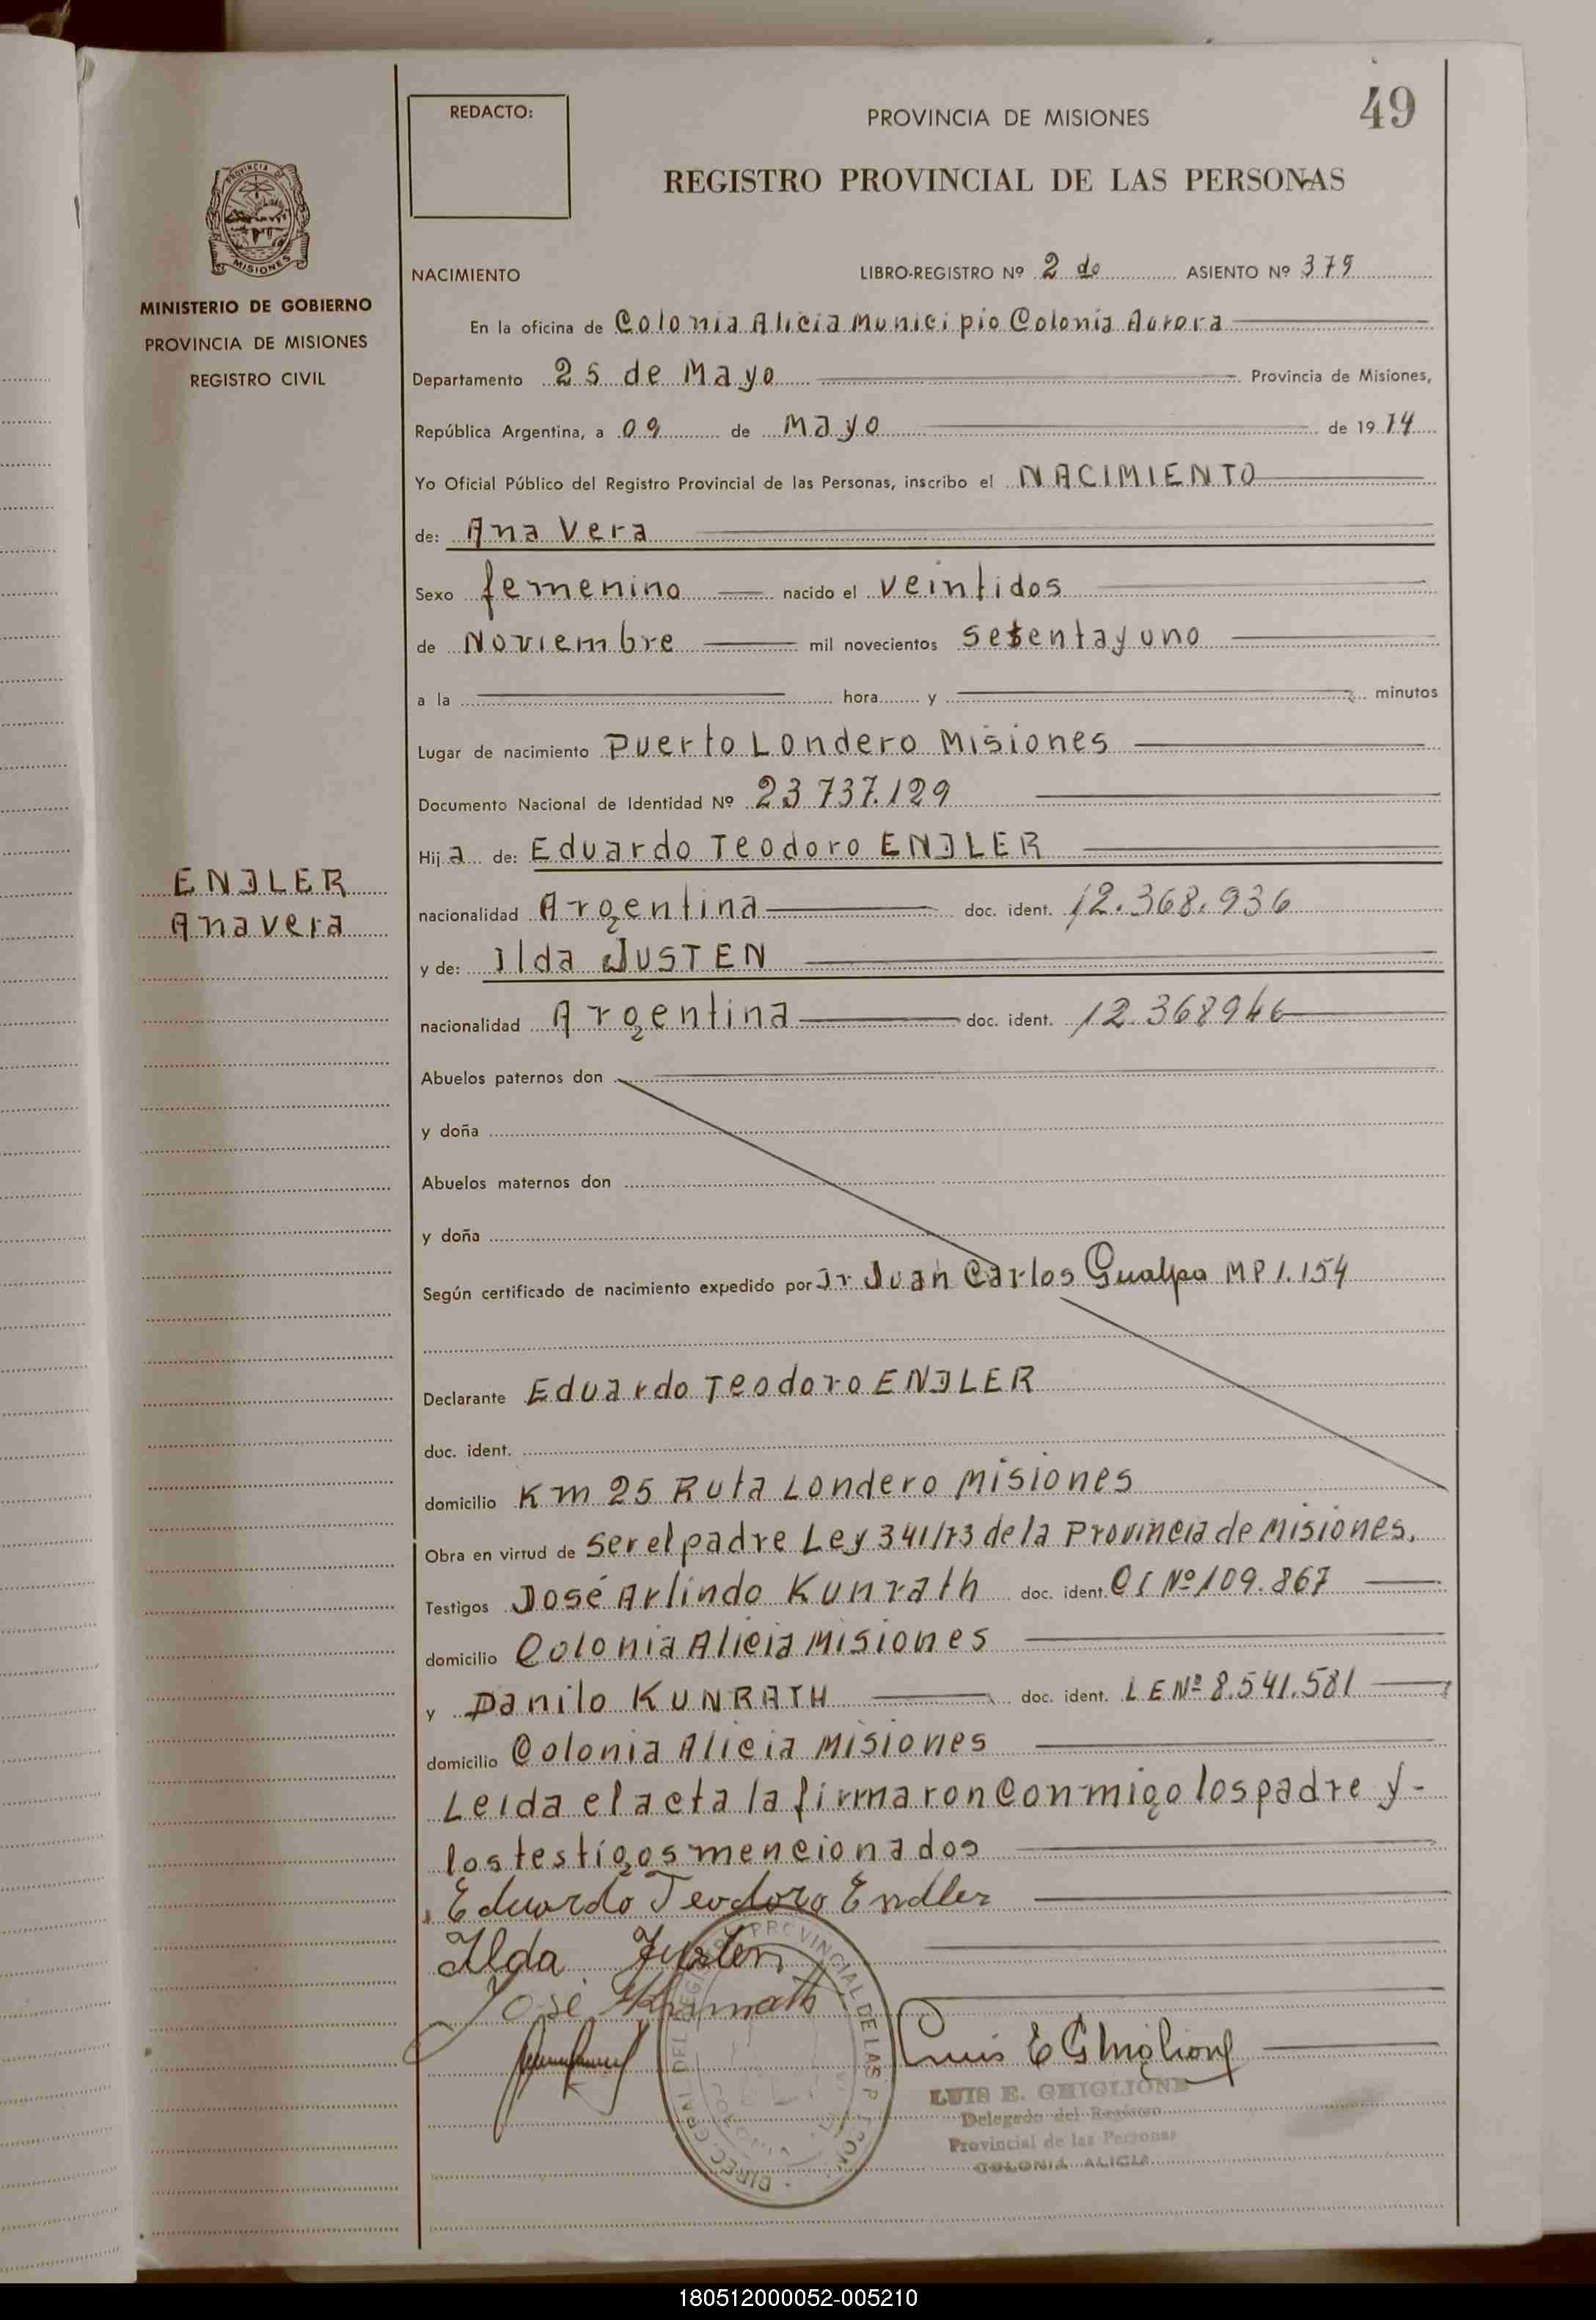 REDACTO:
PROVINCIA DE MISIONES
49
REGISTRO PROVINCIAL DE LAS PERSONAS
PROVINCIA DE
MISIONES
MINISTERIO DE GOBIERNO
PROVINCIA DE MISIONES
REGISTRO CIVIL
NACIMIENTO LIBRO-REGISTRO Nº 2 do ASIENTO Nº 379
En la oficina de Colonia Alicia Municipio Colonia Aurora
Departamento 25 de Mayo Provincia de Misiones,
República Argentina, a 09 de Mayo de 1974
Yo Oficial Público del Registro Provincial de las Personas, inscribo el NACIMIENTO
de: Ana Vera
Sexo femenino nacido el veintidos
de Noviembre mil novecientos setenta y uno
a la hora y minutos
Lugar de nacimiento Puerto Londero Misiones
Documento Nacional de Identidad Nº 23 737.129
Hija de: Eduardo Teodoro ENDLER
ENDLER
Ana vera
nacionalidad Argentina doc. ident. 12.368.936
y de: Ilda JUSTEN
nacionalidad Argentina doc. ident. 12.368946
Abuelos paternos don
y doña
Abuelos maternos don
y doña
Según certificado de nacimiento expedido por Dr Juan Carlos Gualpa MP 1.154
Declarante Eduardo Teodoro ENDLER
doc. ident.
domicilio Km 25 Ruta Londero Misiones
Obra en virtud de ser el padre Ley 341/73 de la Provincia de Misiones.
Testigos José Arlindo Kunrath doc. ident. CI Nº 109.867
domicilio Colonia Alicia Misiones
y Danilo KUNRATH doc. ident. LE Nº 8.541.581
domicilio Colonia Alicia Misiones
Leida el acta la firmaron conmigo los padre y -
los testigos mencionados
Eduardo Teodoro Endler
Ilda Justen
José Kunrath
Luis E Ghiglione
LUIS E. GHIGLIONE
Delegado del Registro
Provincial de las Personas
COLONIA ALICIA
180512000052-005210